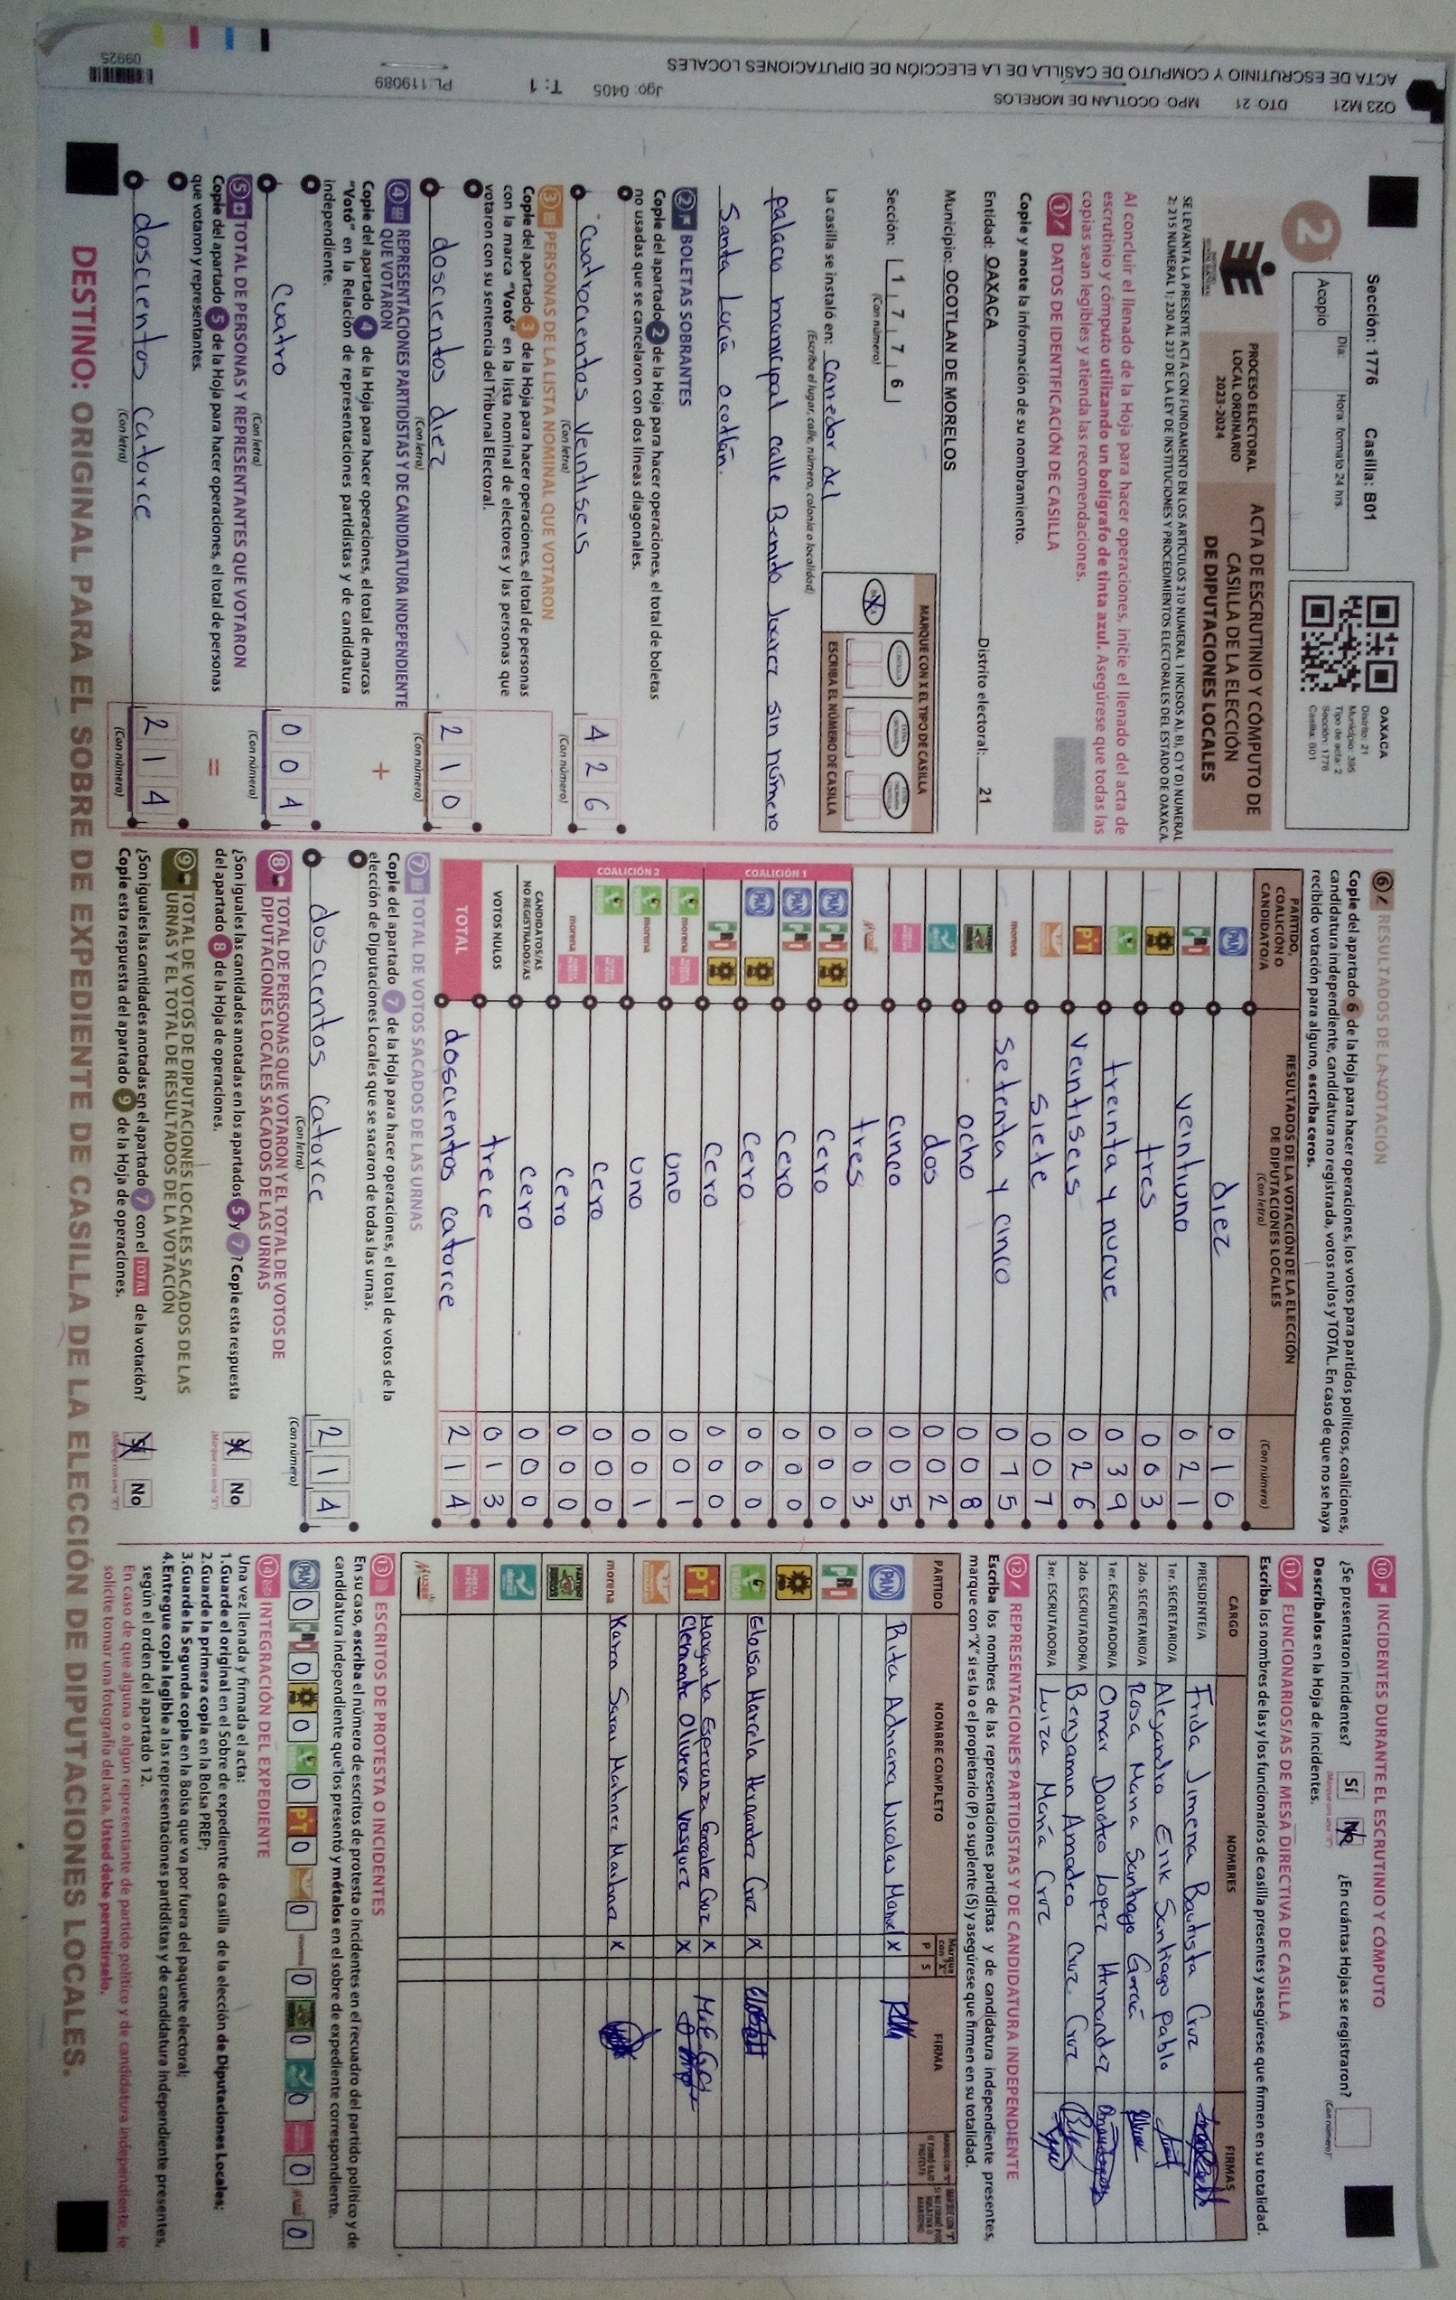 Sección: 1776 Casilla: B01
Día: Hora: formato 24 hrs.
Acopio
2
OAXACA
Distrito: 21
Municipio: 395
Tipo de acta: 2
Sección: 1776
Casilla: B01
PROCESO ELECTORAL
LOCAL ORDINARIO
2023-2024
ACTA DE ESCRUTINIO Y CÓMPUTO DE
CASILLA DE LA ELECCIÓN
DE DIPUTACIONES LOCALES
SE LEVANTA LA PRESENTE ACTA CON FUNDAMENTO EN LOS ARTÍCULOS 210 NUMERAL 1 INCISOS A), B), C) Y D) NUMERAL
2; 215 NUMERAL 1; 230 AL 237 DE LA LEY DE INSTITUCIONES Y PROCEDIMIENTOS ELECTORALES DEL ESTADO DE OAXACA
Al concluir el llenado de la Hoja para hacer operaciones, inicie el llenado del acta de
escrutinio y cómputo utilizando un bolígrafo de tinta azul. Asegúrese que todas las
copias sean legibles y atienda las recomendaciones.
1 DATOS DE IDENTIFICACIÓN DE CASILLA
Copie y anote la información de su nombramiento.
Entidad: OAXACA Distrito electoral: 21
Municipio: OCOTLAN DE MORELOS
Sección: 1 7 7 6
(Con número)
MARQUE CON X EL TIPO DE CASILLA
ESCRIBA EL NÚMERO DE CASILLA
La casilla se instaló en: Corredor del
(Escriba el lugar, calle, número, colonia o localidad)
palacio municipal calle Benito Juarez sin número
Santa Lucía Ocotlán.
2 BOLETAS SOBRANTES
Copie del apartado 2 de la Hoja para hacer operaciones, el total de boletas
no usadas que se cancelaron con dos líneas diagonales.
Cuatrocientos veintiseis 4 2 6
(Con letra) (Con número)
3 PERSONAS DE LA LISTA NOMINAL QUE VOTARON
Copie del apartado 3 de la Hoja para hacer operaciones, el total de personas
con la marca "Votó" en la lista nominal de electores y las personas que
votaron con su sentencia del Tribunal Electoral.
doscientos diez 2 1 0
(Con letra) (Con número)
4 REPRESENTACIONES PARTIDISTAS Y DE CANDIDATURA INDEPENDIENTE
QUE VOTARON
+
Copie del apartado 4 de la Hoja para hacer operaciones, el total de marcas
"Votó" en la Relación de representaciones partidistas y de candidatura
independiente.
Cuatro 0 0 4
(Con letra) (Con número)
5 TOTAL DE PERSONAS Y REPRESENTANTES QUE VOTARON
=
Copie del apartado 5 de la Hoja para hacer operaciones, el total de personas
que votaron y representantes.
doscientos Catorce 2 1 4
(Con letra) (Con número)
6 RESULTADOS DE LA VOTACIÓN
Copie del apartado 6 de la Hoja para hacer operaciones, los votos para partidos políticos, coaliciones,
candidatura independiente, candidatura no registrada, votos nulos y TOTAL. En caso de que no se haya
recibido votación para alguno, escriba ceros.
PARTIDO,
COALICIÓN O
CANDIDATO/A
RESULTADOS DE LA VOTACIÓN DE LA ELECCIÓN
DE DIPUTACIONES LOCALES
(Con letra) (Con número)
PAN diez 0 1 0
PRI veintiuno 0 2 1
tres 0 0 3
treinta y nueve 0 3 9
PT veintiseis 0 2 6
siete 0 0 7
morena setenta y cinco 0 7 5
ocho 0 0 8
dos 0 0 2
cinco 0 0 5
tres 0 0 3
COALICIÓN 1
PAN PRI cero 0 0 0
PAN PRI cero 0 0 0
PAN cero 0 0 0
PRI cero 0 0 0
COALICIÓN 2
morena uno 0 0 1
morena uno 0 0 1
cero 0 0 0
morena cero 0 0 0
CANDIDATOS/AS
NO REGISTRADOS/AS cero 0 0 0
VOTOS NULOS trece 0 1 3
TOTAL doscientos catorce 2 1 4
7 TOTAL DE VOTOS SACADOS DE LAS URNAS
Copie del apartado 7 de la Hoja para hacer operaciones, el total de votos de la
elección de Diputaciones Locales que se sacaron de todas las urnas.
doscientos Catorce 2 1 4
(Con letra) (Con número)
8 TOTAL DE PERSONAS QUE VOTARON Y EL TOTAL DE VOTOS DE
DIPUTACIONES LOCALES SACADOS DE LAS URNAS
¿Son iguales las cantidades anotadas en los apartados 5 y 7? Copie esta respuesta
del apartado 8 de la Hoja de operaciones.
Sí No
9 TOTAL DE VOTOS DE DIPUTACIONES LOCALES SACADOS DE LAS
URNAS Y EL TOTAL DE RESULTADOS DE LA VOTACIÓN
¿Son iguales las cantidades anotadas en el apartado 7 con el TOTAL de la votación?
Copie esta respuesta del apartado 9 de la Hoja de operaciones.
Sí No
10 INCIDENTES DURANTE EL ESCRUTINIO Y CÓMPUTO
¿Se presentaron incidentes? Sí No ¿En cuántas Hojas se registraron?
(Con número)
Descríbalos en la Hoja de incidentes.
11 FUNCIONARIOS/AS DE MESA DIRECTIVA DE CASILLA
Escriba los nombres de las y los funcionarios de casilla presentes y asegúrese que firmen en su totalidad.
CARGO NOMBRES FIRMAS
PRESIDENTE/A Frida Jimena Bautista Cruz
1er. SECRETARIO/A Alejandro Erik Santiago Pablo
2do. SECRETARIO/A Rosa Maria Santiago García
1er. ESCRUTADOR/A Omar Doroteo Lopez Hernandez
2do. ESCRUTADOR/A Benjamin Amadeo Cruz Cruz
3er. ESCRUTADOR/A Luiza María Cruz
12 REPRESENTACIONES PARTIDISTAS Y DE CANDIDATURA INDEPENDIENTE
Escriba los nombres de las representaciones partidistas y de candidatura independiente presentes,
marque con "X" si es la o el propietario (P) o suplente (S) y asegúrese que firmen en su totalidad.
PARTIDO NOMBRE COMPLETO Marque con "X" P S FIRMA
PAN Rita Adriana Nicolas Manuel X
PRI
Eloisa Marcela Hernandez Cruz X
PT Margarita Esperanza Gonzalez Cruz X
Clemente Olivera Vasquez X
morena Karen Sarai Martinez Martinez X
13 ESCRITOS DE PROTESTA O INCIDENTES
En su caso, escriba el número de escritos de protesta o incidentes en el recuadro del partido político y de
candidatura independiente que los presentó y métalos en el sobre de expediente correspondiente.
PAN 0 PRI 0 0 0 PT 0 0 morena 0 0 0 0 0
14 INTEGRACIÓN DEL EXPEDIENTE
Una vez llenada y firmada el acta:
1.Guarde el original en el Sobre de expediente de casilla de la elección de Diputaciones Locales;
2.Guarde la primera copia en la Bolsa PREP;
3.Guarde la Segunda copia en la Bolsa que va por fuera del paquete electoral;
4.Entregue copia legible a las representaciones partidistas y de candidatura independiente presentes,
según el orden del apartado 12.
En caso de que alguna o algún representante de partido político y de candidatura independiente, le
solicite tomar una fotografía del acta, Usted debe permitírselo.
DESTINO: ORIGINAL PARA EL SOBRE DE EXPEDIENTE DE CASILLA DE LA ELECCIÓN DE DIPUTACIONES LOCALES.
O23 M21 DTO: 21 MPO: OCOTLAN DE MORELOS
ACTA DE ESCRUTINIO Y COMPUTO DE CASILLA DE LA ELECCIÓN DE DIPUTACIONES LOCALES
Jgo: 0405 T: 1 PL:119089
09925